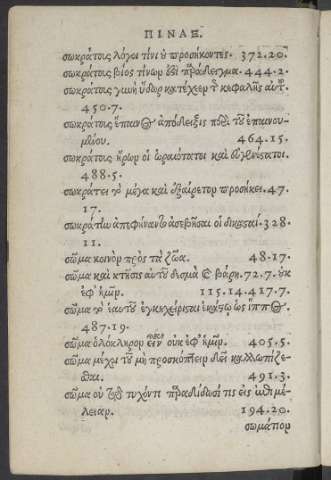 ΠΙΝΑΞ.
σωκράτοις λόγοι τίνι οὐ προσήκοντες. 372.20.
σωκράτοις βίος τίνων ἐςὶ παράδειγμα. 444.2.
σωκράτοις γυνὴ ὕδωρ κατέχεεν τ̃ κεφαλῆς αὐτ̃.
450.7.
σωκράτοις ἔπαινος ἀπόδειξις ποῦ τοῦ ἐπαινου-
μένου. 464.15.
σωκράτοις ἤρων οἱ ὡραιότατοι καὶ εὐγενέςατοι.
488.5.
σωκράτει τὸ μέγα καὶ ἐξαίρετον προσήκει. 47.
17.
σωκράτην ἀπεφήναντο ἀσεβῆσαι οἱ δικασαί. 328.
11.
σῶμα κοινὸν πρὸς τὰ ζῶα. 48.17.
σῶμα καὶ κτῆσις αὐτοῦ δεσμὰ & βάρη. 72.7. οὐκ
ἐφ᾽ ἡμῖν. 115.14.417.7.
σῶμα τὸ ἑαυτοῦ ἐγκεχείρισαι ἑκάςῳ ὡς ἵππος.
487.19.
σῶμα ὁλόκληρον ἔχειν οὐκ ἐφ᾽ ἡμῖν. 405.5.
σῶμα μέχρι τοῦ μὴ προσκόπτειν δεῖ καλλωπίζε-
σθαι. 491.3.
σῶμα οὐ τῷ τυχόντι παραδίδωσί τις εἰς ἐπιμέ-
λειαν. 194.20.
σωμάτων